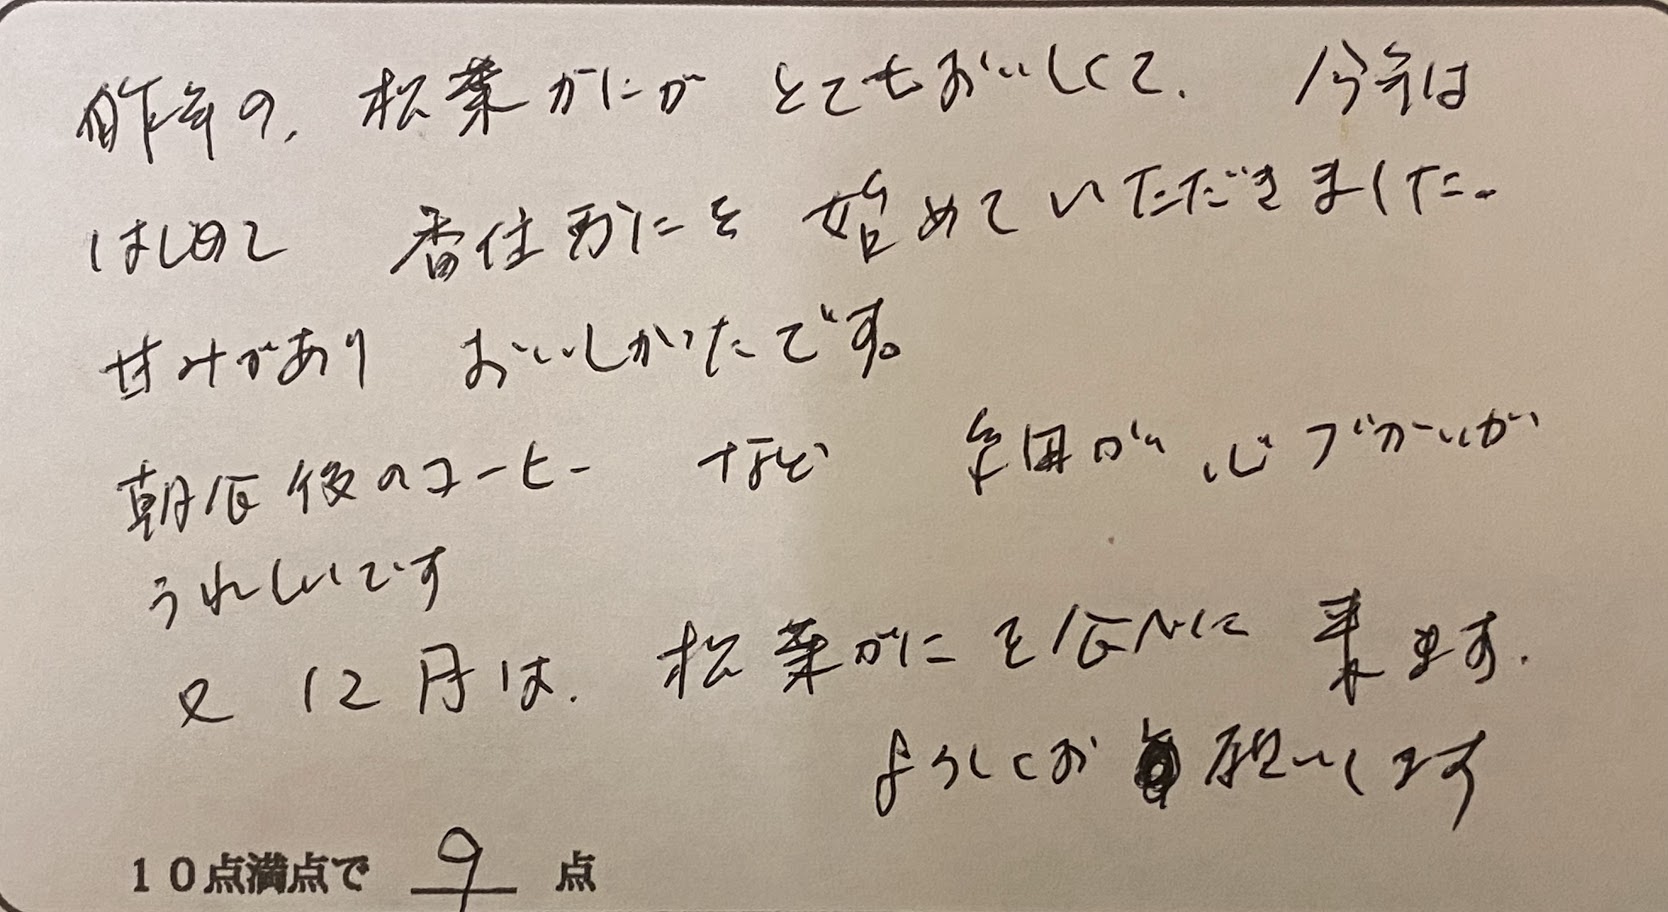 昨年の、松葉がにが とてもおいしくて、 今年は
はじめて 香住がにを 始めていただきました。
甘みがあり おいしかったです。
朝食後のコーヒー など 細田が 心づかいが
うれしいです
又 12月は、松葉がにを食べに 来ます。
よろしくお 願いします
10点満点で 9 点